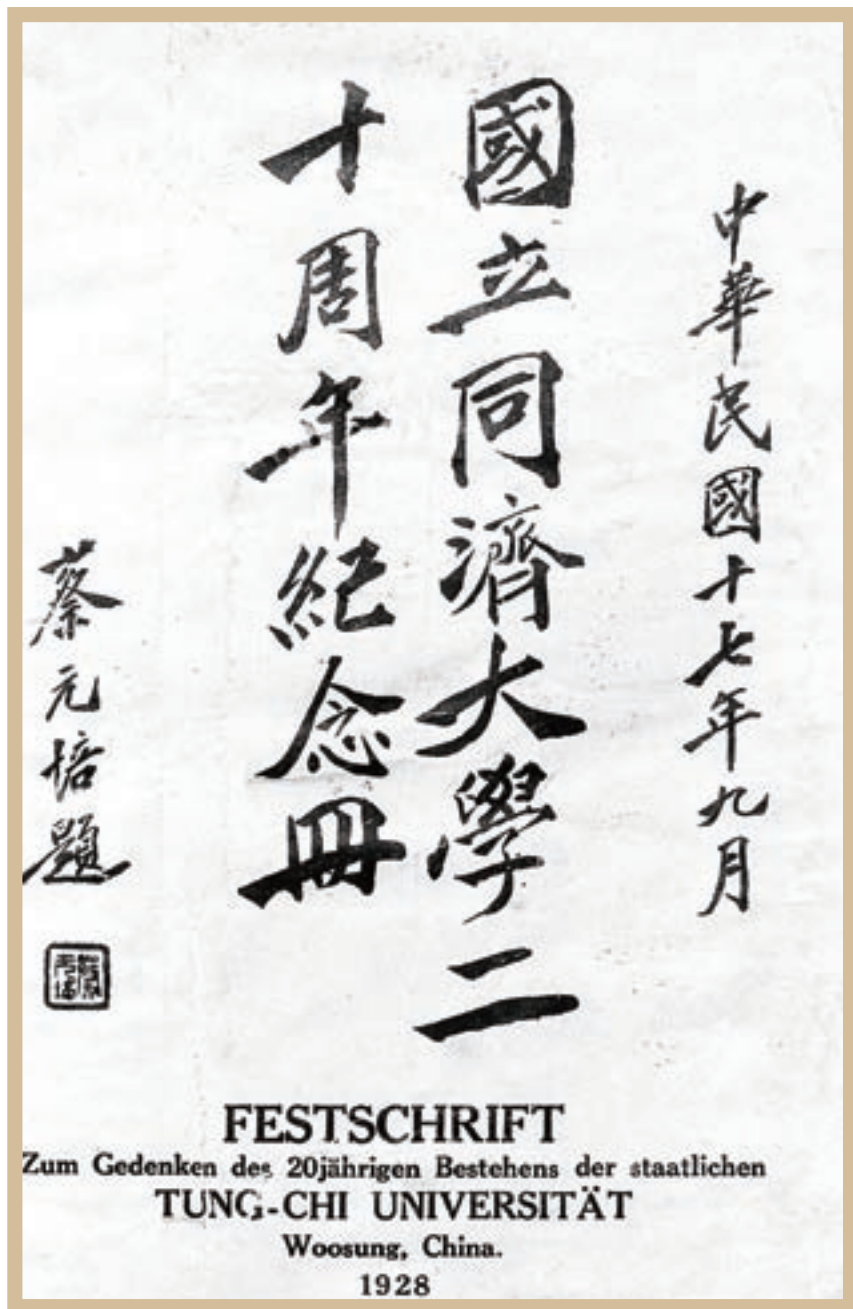 中華民國十七年九月
國立同濟大學二
十周年紀念冊
蔡元培題
FESTSCHRIFT
Zum Gedenken des 20jährigen Bestehens der staatlichen
TUNG-CHI UNIVERSITÄT
Woosung, China.
1928